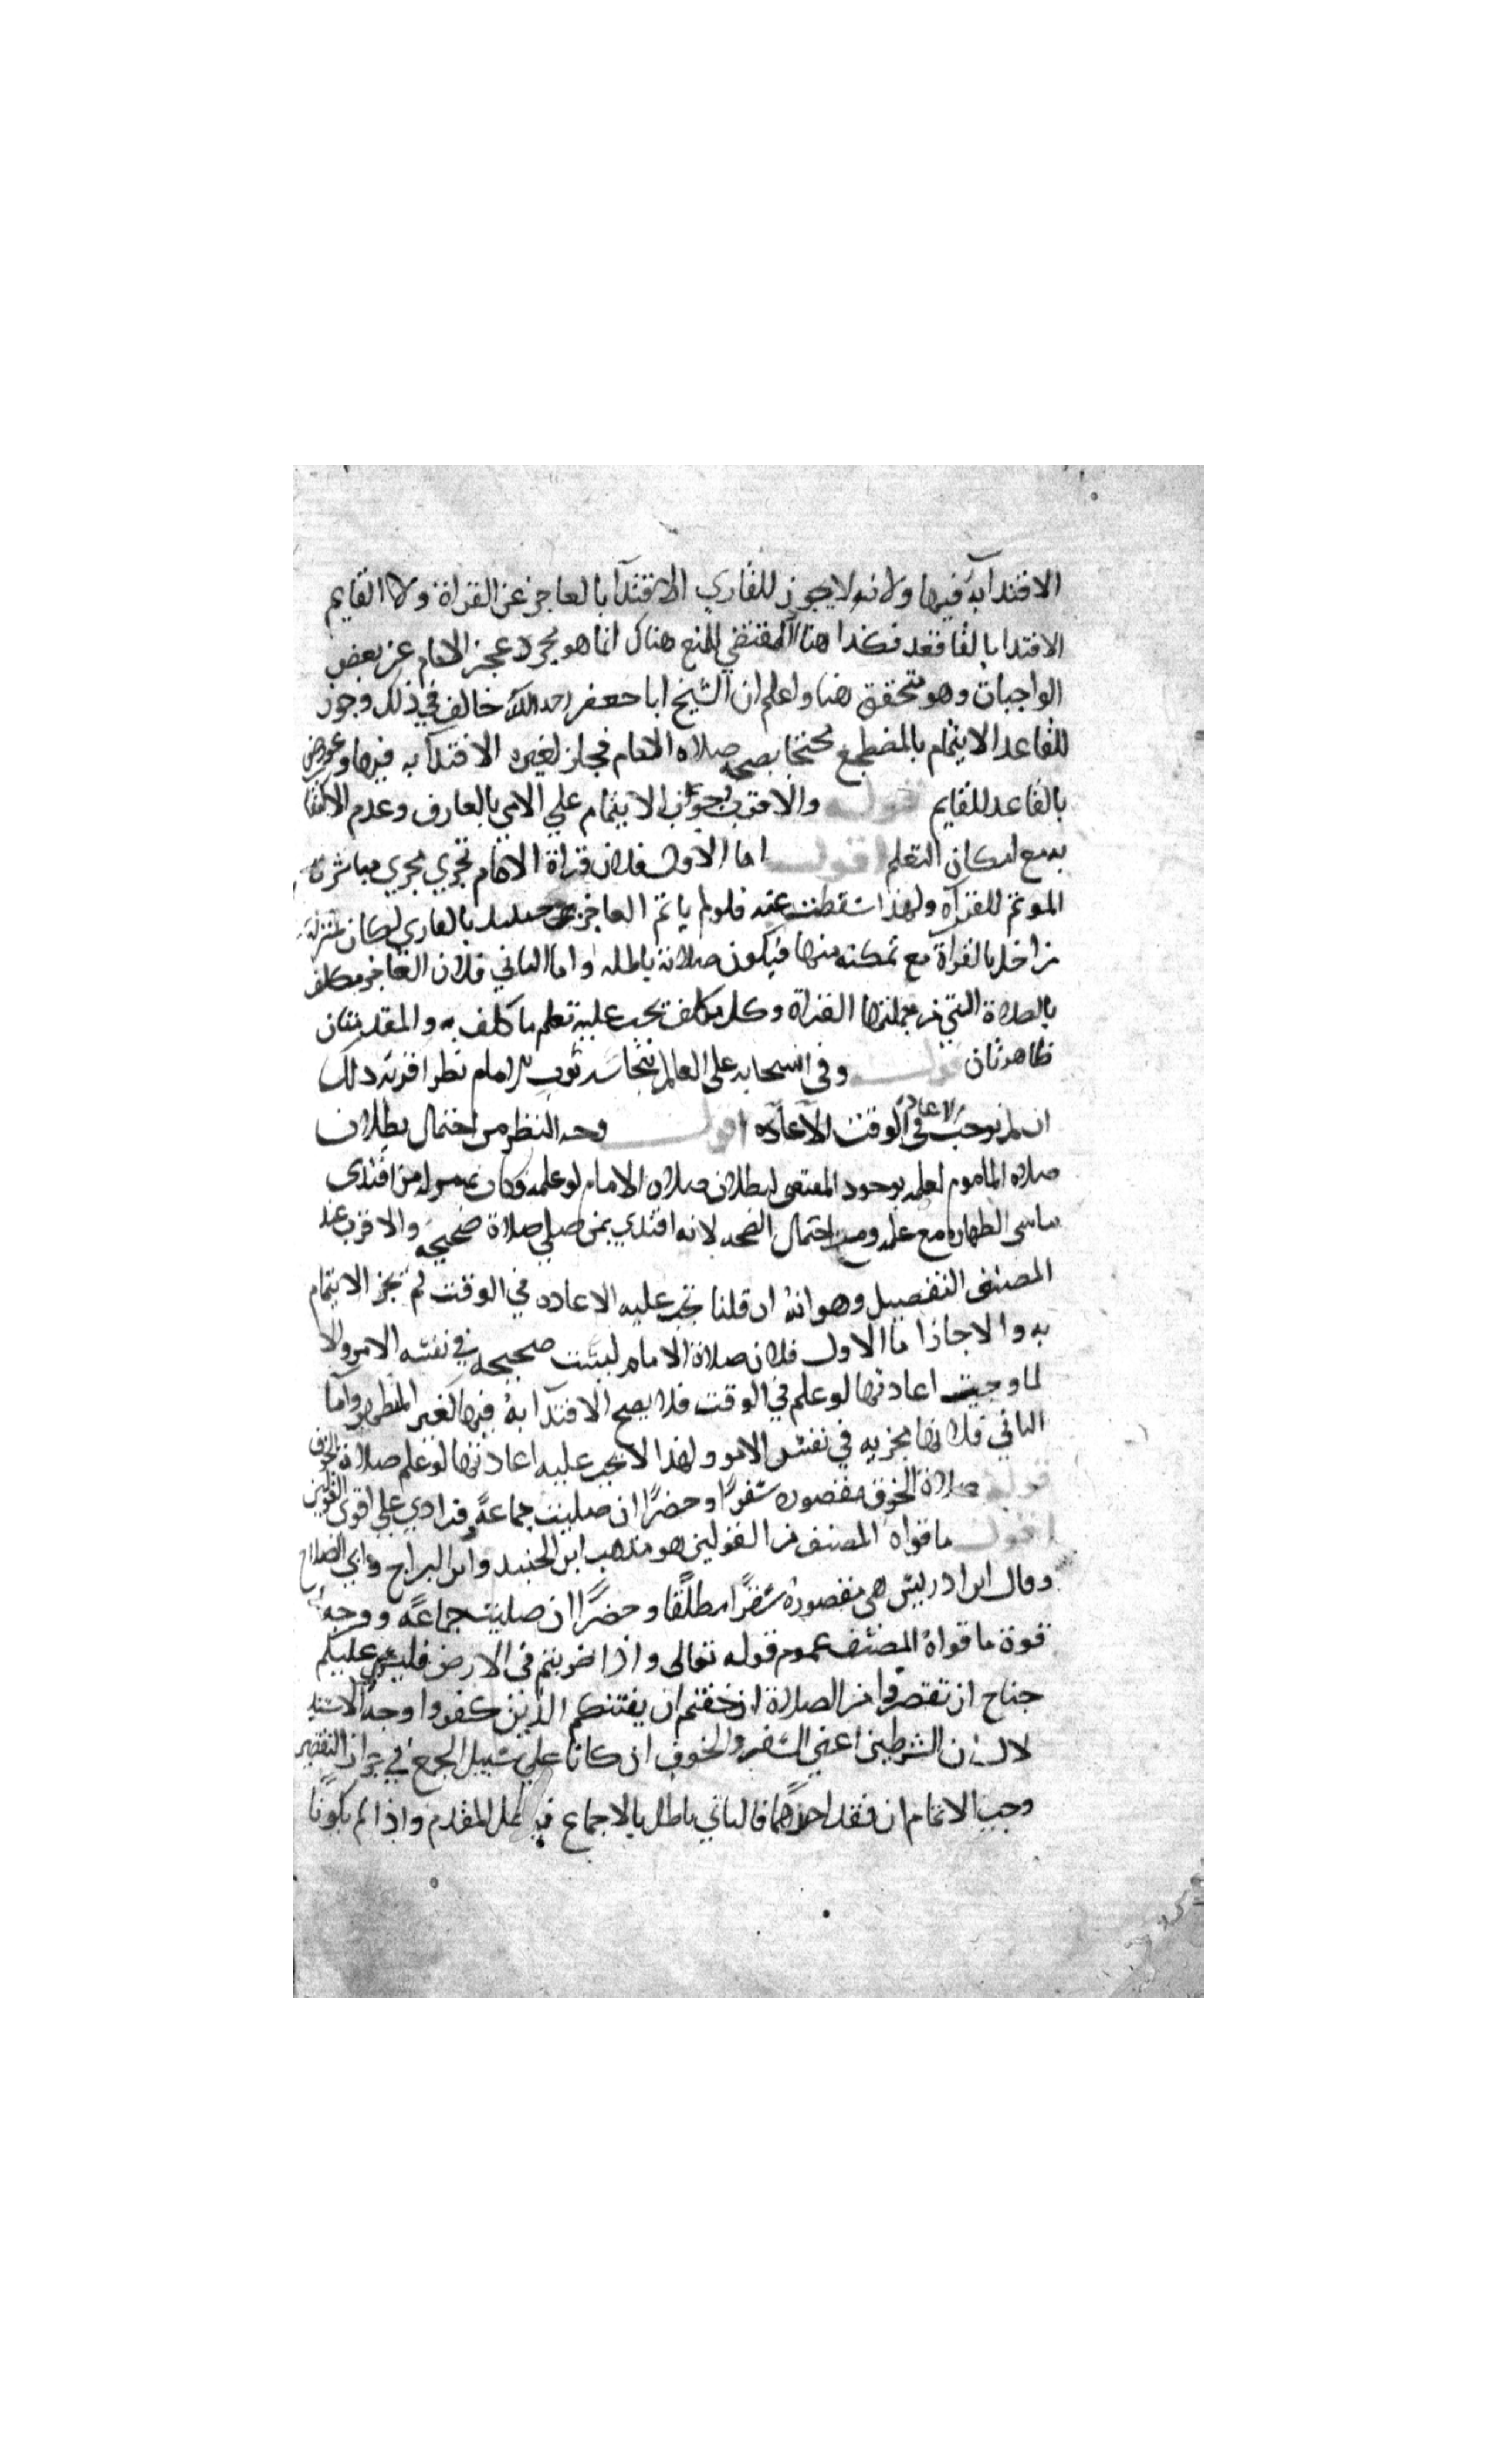 الاقتدا به فيها ولانه لا يجوز للقاري الاقتدآ بالعاجز عن القراة ولا القايم
الاقتدا بالقاعد فكذا هنا المقتضي للمنع هناك انما هو مجرد عجز الامام عن بعض
الواجبات وهو متحقق هنا واعلم ان الشيخ ابا جعفر رحمه الله خالف في ذلك وجوز
للقاعد الايتمام بالمضطجع محتجا بصحه صلاه الامام فجاز لغيره الاقتدآ به فيها وعورض
بالقاعد للقايم قوله والاقرب وجوب الايتمام علي الامي بالعارف وعدم الاكتفا
به مع امكان التعلم اقول اما الاول فلان قراة الامام تجري مجري مباشرة
الموتم للقرآة ولهذا سقطت عنه فلو لم ياتم العاجز حينيد بالقاري لكان بمنزلة
من اخل بالقراة مع تمكنه منها فيكون صلاته باطله واما الثاني فلان العاجز مكلف
بالصلاة التي من جملتها القراة وكل مكلف يجب عليه تعلم ما كلف به والمقدمتان
ظاهرتان قوله وفي انسحابه علي العالم بنجاسه ثوب الامام نظر اقربه ذلك
ان لم نوجب الاعادة في الوقت اقول وجه النظر من احتمال بطلان
صلاه الماموم لعلمه بوجود المقتضي لبطلان صلاه الامام لو علمه وكان بمنزله من اقتدى
بناسي الطهاره مع علمه ومن احتمال الصحه لانه اقتدي بمن صلي صلاة صحيحه والاقرب عند
المصنف التفصيل وهو انه ان قلنا تجب عليه الاعاده في الوقت لم يجز الايتمام
به والا جاز اما الاول فلان صلاة الامام ليست صحيحه في نفس الامر والا
لما وجبت اعادتها لو علم في الوقت فلا يصح الاقتدآ به فيها كغير المتطهر واما
الثاني فلانها مجزيه في نفس الامر ولهذا لا تجب عليه اعادتها لو علم صلاة الخوف
قوله صلاة الخوف مقصوره سفرا وحضرا ان صليت جماعة وفرادي علي اقوى القولين
اقول ما قواه المصنف من القولين هو مذهب ابن الجنيد وابن البراج وابي الصلاح
وقال ابن ادريس هي مقصورة سفرا مطلقا وحضرا ان صليت جماعة ووجه
قوة ما قواه المصنف عموم قوله تعالى واذا ضربتم في الارض فليس عليكم
جناح ان تقصروا من الصلاة ان خفتم ان يفتنكم الذين كفروا وجه الاستد
لال ان الشرطين اعني السفر والخوف ان كانا علي سبيل الجمع في جواز التقصير
وجب الاتمام ان فقد احدهما فالثاني باطل بالاجماع المقدم واذا لم يكونا